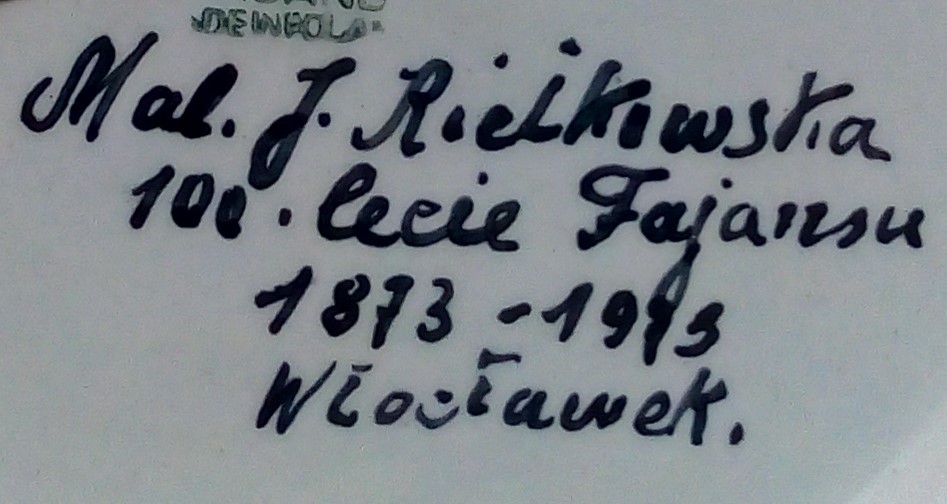 Mal. J. Rielkowska
100-lecie Fajansu
1873-1973
Włocławek.